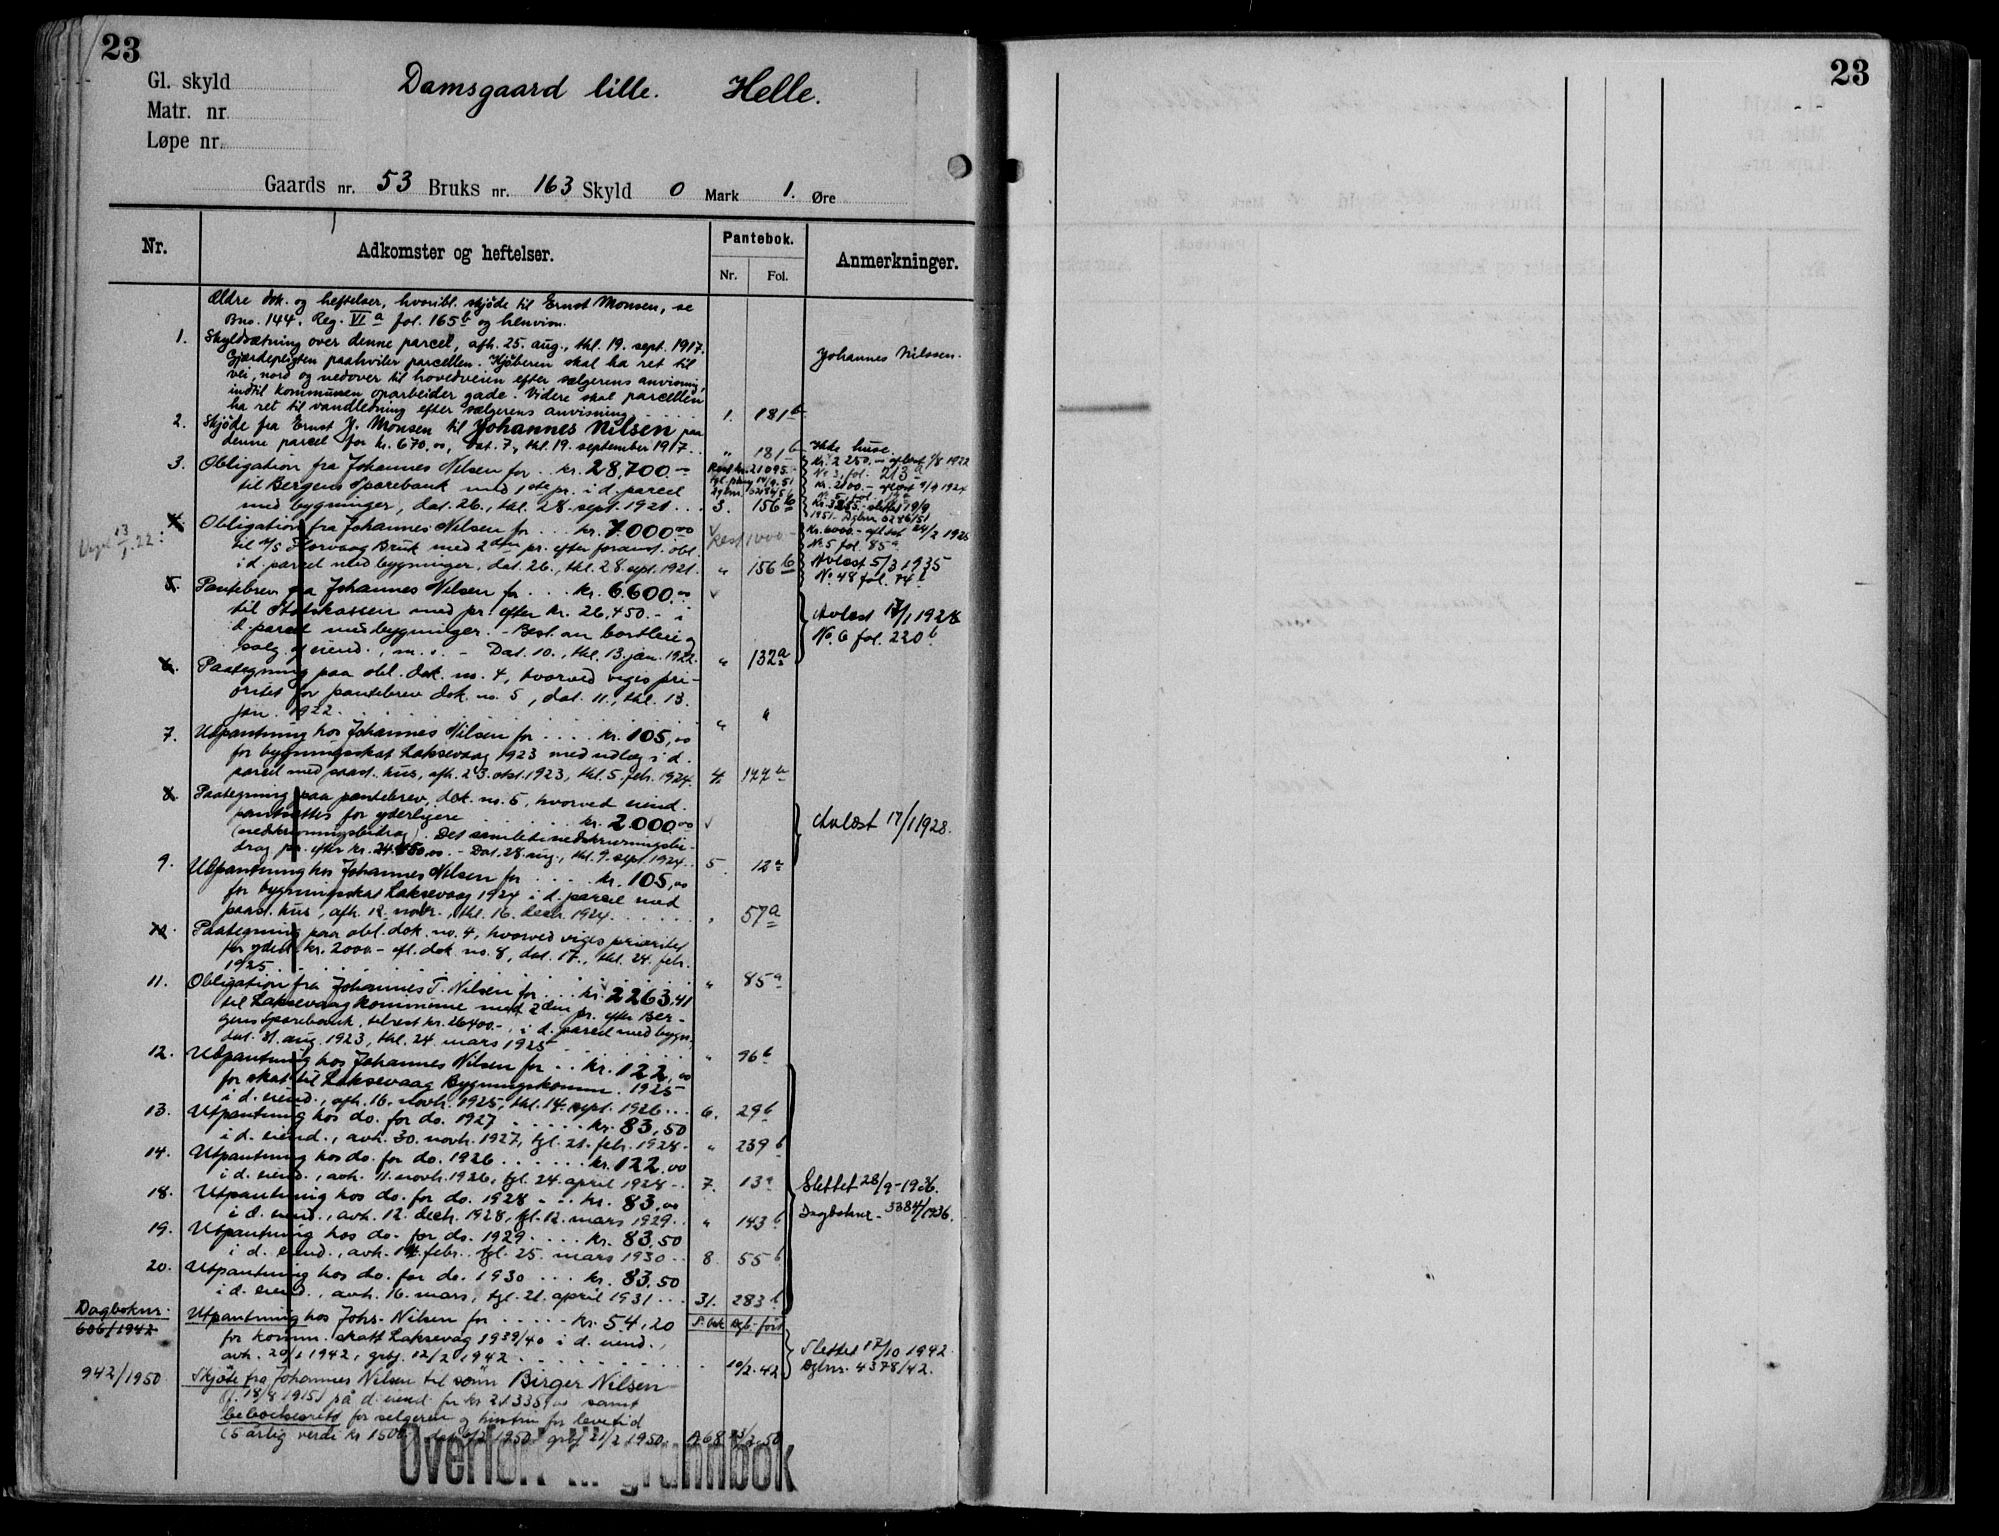 23
Gl. skyld
Matr. nr.
Løpe nr.
Damsgaard lille. Helle.
Gaards nr. 53 Bruks nr. 163 Skyld 0 Mark 1. Øre
Nr. Adkomster og heftelser. Pantebok. Nr. Fol. Anmerkninger.
Ældre dok. og heftelser, hvoribl. skjøde til Ernst Monsen, se
Bno. 144. Reg. VI a fol. 165 b og henvisn.
1. Skyldsætning over denne parcel, afh. 25. aug., thl. 19. sept. 1917.
Gjærdepligten paahviler parcellen. Kjøberen skal ha ret til
vei, nord og nedover til hovedveien efter sælgerens anvisning,
indtil kommunen oparbeider gade. Videre skal parcellen
ha ret til vandledning efter sælgerens anvisning 1. 181 b
Johannes Nilssen.
2. Skjøde fra Ernst J. Monsen til Johannes Nilsen paa
denne parcel for kr. 670,00, dat. 7., thl. 19. september 1917. " 181 b
Ikke huse.
3. Obligation fra Johannes Nilsen for .. kr. 28,700.-
til Bergens Sparebank med 1ste pr. i d. parcel
med bygninger, dat. 26., thl. 28. sept. 1921 ... 3. 156 b
Rest kr. 21095.-
Kr. 2250.- aflæst 9/8 1922
No 3, fol. 213 a
Kr. 2100.- aflæst 9/9 1924
No 5, fol. 12 a
Kr. 3255.- slettet 19/9
1951.
4. Obligation fra Johannes Nilsen for ... kr. 7000.00
til A/S Florvaag Bruk med 2den pr. efter foranst. obl.
i d. parcel med bygninger, dat. 26., thl. 28. sept. 1921. " 156 b
Rest 1000.-
Kr. 6000.- aflæst 24/2 1925
No 5 fol. 85 a
Avlæst 5/3 1935
No 48 fol. 74 b
5. Pantebrev fra Johannes Nilsen for ... kr. 6600.00
til Statskassen med pr. efter kr. 26,450.- i
d. parcel med bygninger. - Best. om bortleie og
salg af eiend., m. v. - Dat. 10., thl. 13. jan. 1922. " 132 a
Avlæst 17/1 1928
No. 6 fol. 220 b
6. Paategning paa obl. dok. no. 4, hvorved viges pri-
oritet for pantebrev dok. no. 5, dat. 11., thl. 13.
jan. 1922. " "
7. Utpantning hos Johannes Nilsen for .... kr. 105,00
for bygningsskat Laksevaag 1923 med udlæg i d.
parcel med paast. hus, afh. 23. okt. 1923, thl. 5. feb. 1924. 4. 177 b
8. Paategning paa pantebrev, dok. no. 5, hvorved eiend.
pantsættes for yderligere kr. 2000.00
(nedskrivningsbidrag). Det samlede nedskrivningsbi-
drag pr. efter kr. 24.450,00. - Dat. 28. aug., thl. 9. sept. 1924. 5. 12 a
Avlæst 17/1 1928.
9. Utpantning hos Johannes Nilsen for .... kr. 105,00
for bygningsskat Laksevaag 1924 i d. parcel med
paast. hus, afh. 12. novbr., thl. 16. decbr. 1924. " 57 a
10. Paategning paa obl. dok. no. 4, hvorved viges prioritet
for yderl. kr. 2000.- efl. dok. no. 8, dat. 17., thl. 24. febr.
1925. " 85 a
11. Obligation fra Johannes T. Nilsen for ... kr. 2263,41
til Laksevaag kommune med 2den pr. efter Ber-
gens Sparebank, tilrest kr. 26400.-, i d. parcel med bygn.,
dat. 31. aug. 1923, thl. 24. mars 1925 " 96 b
12. Utpantning hos Johannes Nilsen for .. kr. 122,00
for skat til Laksevaag Bygningskomm. 1925
i d. eiend., afh. 16. novbr. 1925, thl. 14. sept. 1926 ... 6. 29 b
13. Utpantning hos do. for do. 1927 ..... kr. 83,50
i d. eiend., avh. 30. novbr. 1927, tgl. 21. febr. 1928. " 239 b
14. Utpantning hos do. for do. 1926 ...... kr. 122,00
i d. eiend., avh. 11. novbr. 1926, tgl. 24. april 1928 .. 7. 13 a
18. Utpantning hos do. for do. 1928 ... kr. 83,00
i d. eiend., avh. 12. decbr. 1928, tgl. 12. mars 1929 .. " 143 b
19. Utpantning hos do. for do. 1929 .... kr. 83,50
i d. eiend., avh. 14. febr., tgl. 25. mars 1930 .. 8 55 b
20. Utpantning hos do. for do. 1930 ... kr. 83,50
i d. eiend., avh. 16. mars, tgl. 21. april 1931 ... 31. 283 b
Slettet 28/9-1936.
Dagboknr. 3384/1936.
Dagboknr.
606/1942
Utpantning hos Johs. Nilsen for ..... kr. 54,20
for komm. skatt Laksevåg 1939/40 i d. eiend.,
avh. 20/1 1942, grbf. 12/2 1942 10/2-42
Slettet 17/10 1942
Dgbnr. 4378/42.
942/1950
Skjøte fra Johannes Nilsen til sønn Birger Nilsen
(f. 18/8 1915) på d. eiend. for kr 21335,00 samt
beboelsesrett for selgeren og hustru for levetid
(5 årlig verdi kr 1500) 1950 grbf 21/2 1950. A68
Overført til grunnbok
23